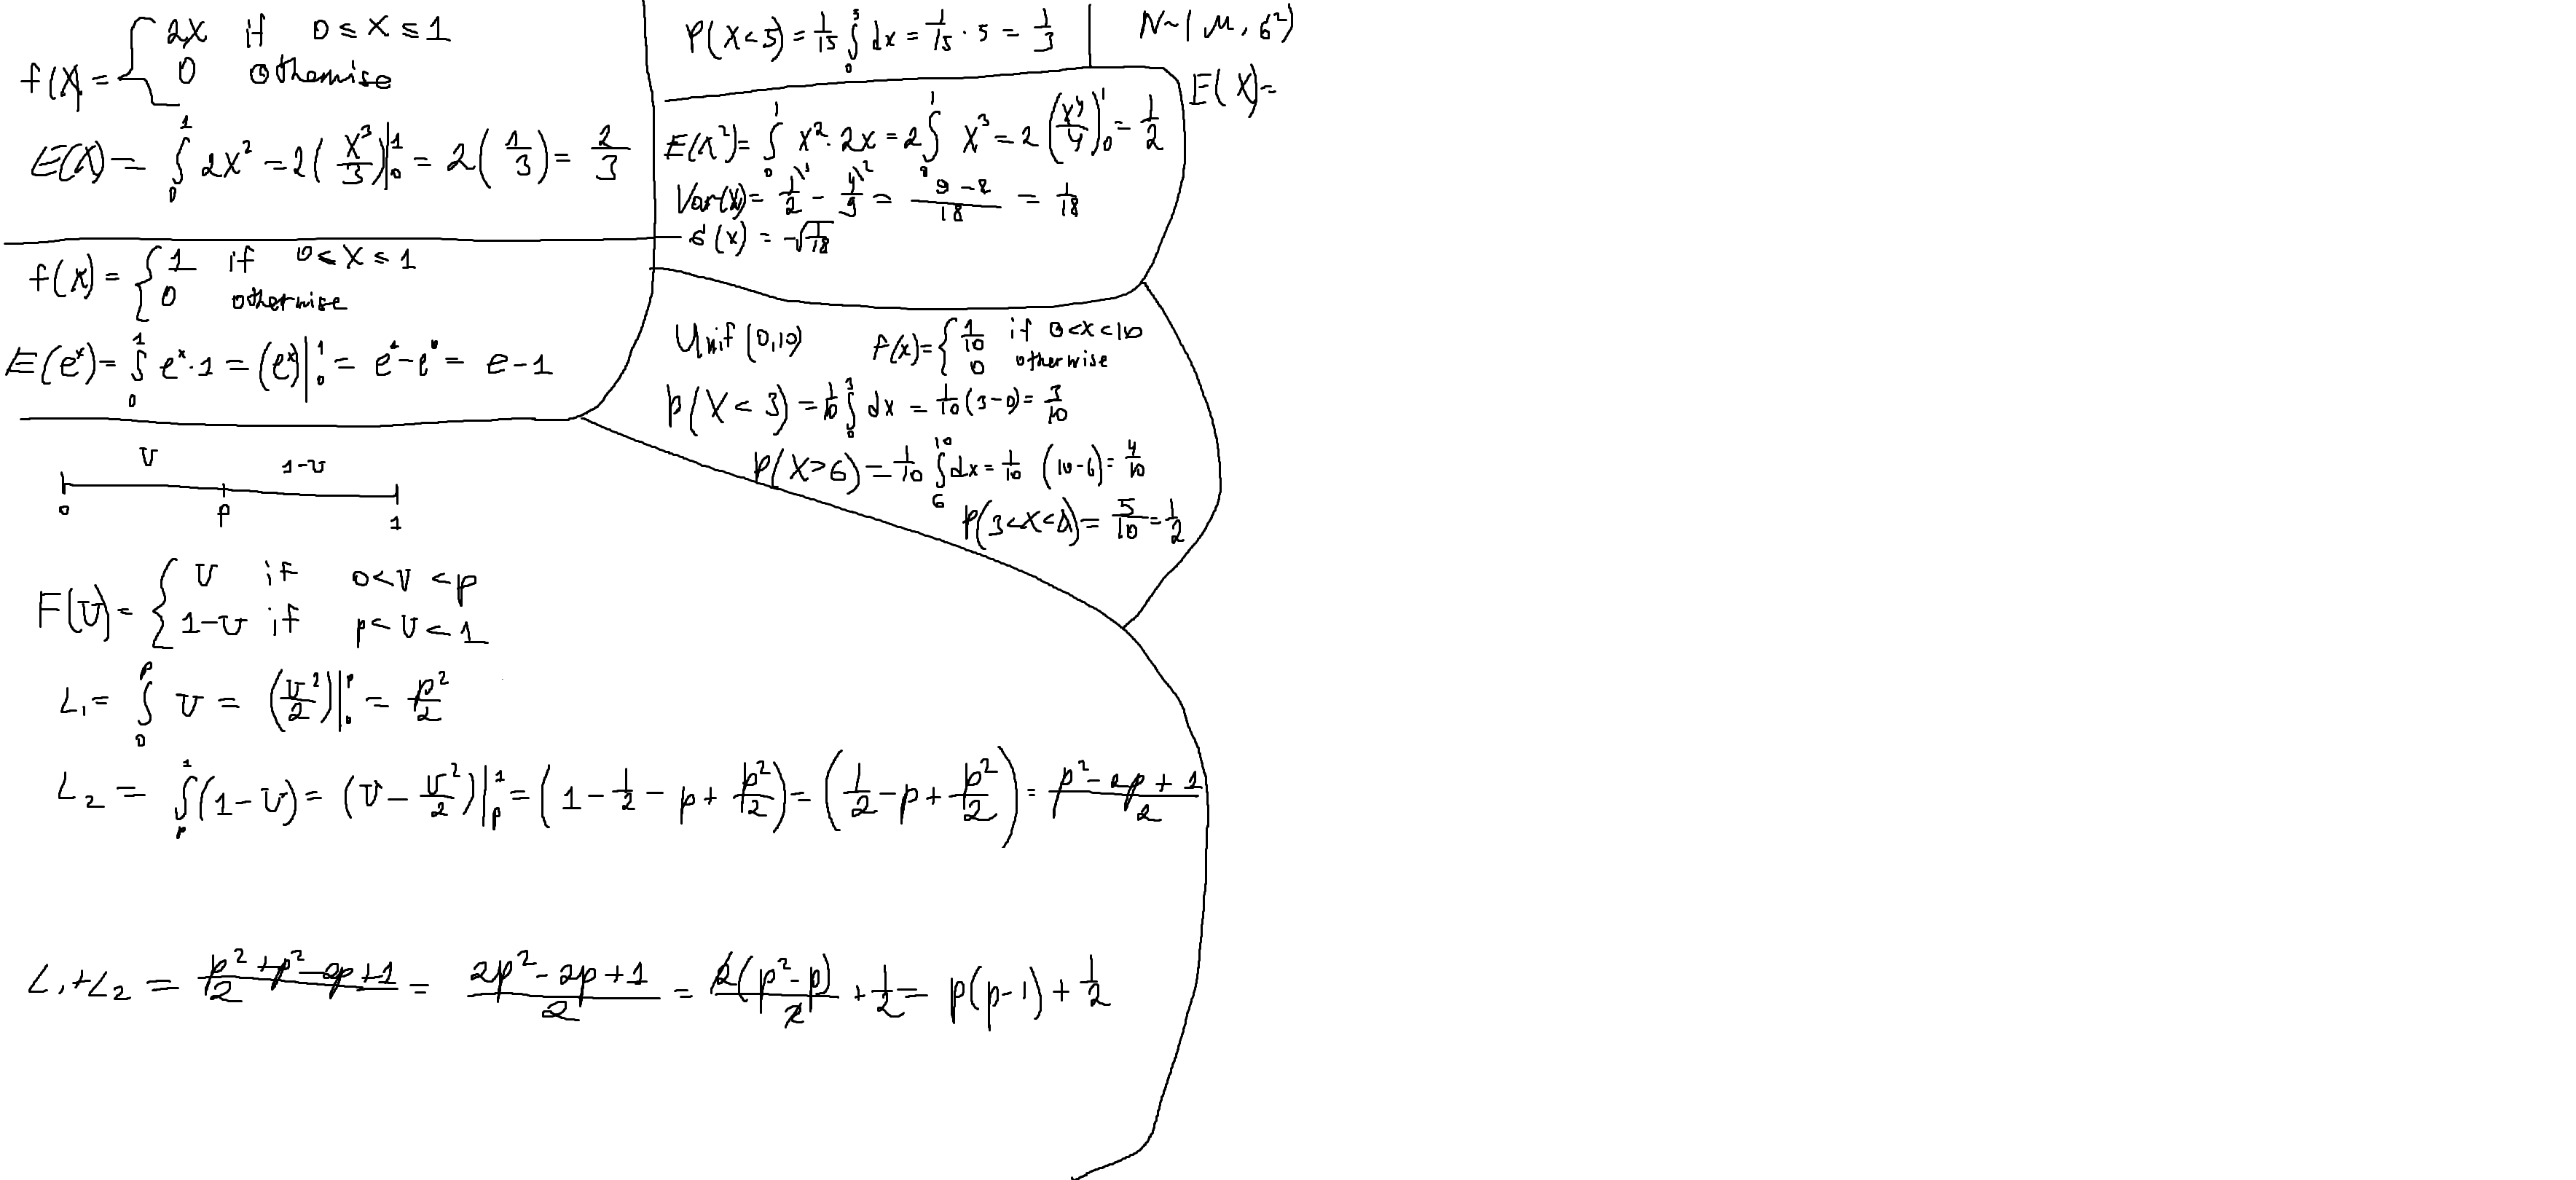 f(X) = { 2X if 0 ≤ X ≤ 1
0 otherwise
E(X) = ∫₀¹ 2X² = 2(X³/3)|₀¹ = 2(1/3) = 2/3
f(X) = { 1 if 0 < X ≤ 1
0 otherwise
E(eˣ) = ∫₀¹ eˣ · 1 = (eˣ)|₀¹ = e¹ - e⁰ = e - 1
U 1-U
0 p 1
F(U) = { U if 0 < U < p
1-U if p < U < 1
L₁ = ∫₀ᵖ U = (U²/2)|₀ᵖ = p²/2
L₂ = ∫ₚ¹ (1-U) = (U - U²/2)|ₚ¹ = (1 - 1/2 - p + p²/2) = (1/2 - p + p²/2) = (p² - 2p + 1)/2
L₁+L₂ = (p² + p² - 2p + 1)/2 = (2p² - 2p + 1)/2 = 2(p² - p)/2 + 1/2 = p(p-1) + 1/2
P(X<5) = 1/15 ∫₀⁵ dx = 1/15 · 5 = 1/3
E(X²) = ∫₀¹ x² · 2x = 2∫₀¹ X³ = 2(X⁴/4)₀¹ = 1/2
Var(X) = 1/2 - 4/9 = (9 - 8)/18 = 1/18
б(x) = √1/18
Unif (0,10) f(x) = { 1/10 if 0<x<10
0 otherwise
P(X < 3) = 1/10 ∫₀³ dx = 1/10 (3-0) = 3/10
P(X>6) = 1/10 ∫₆¹⁰ dx = 1/10 (10-6) = 4/10
P(3<X<8) = 5/10 = 1/2
N~( μ, б²)
E(X)=